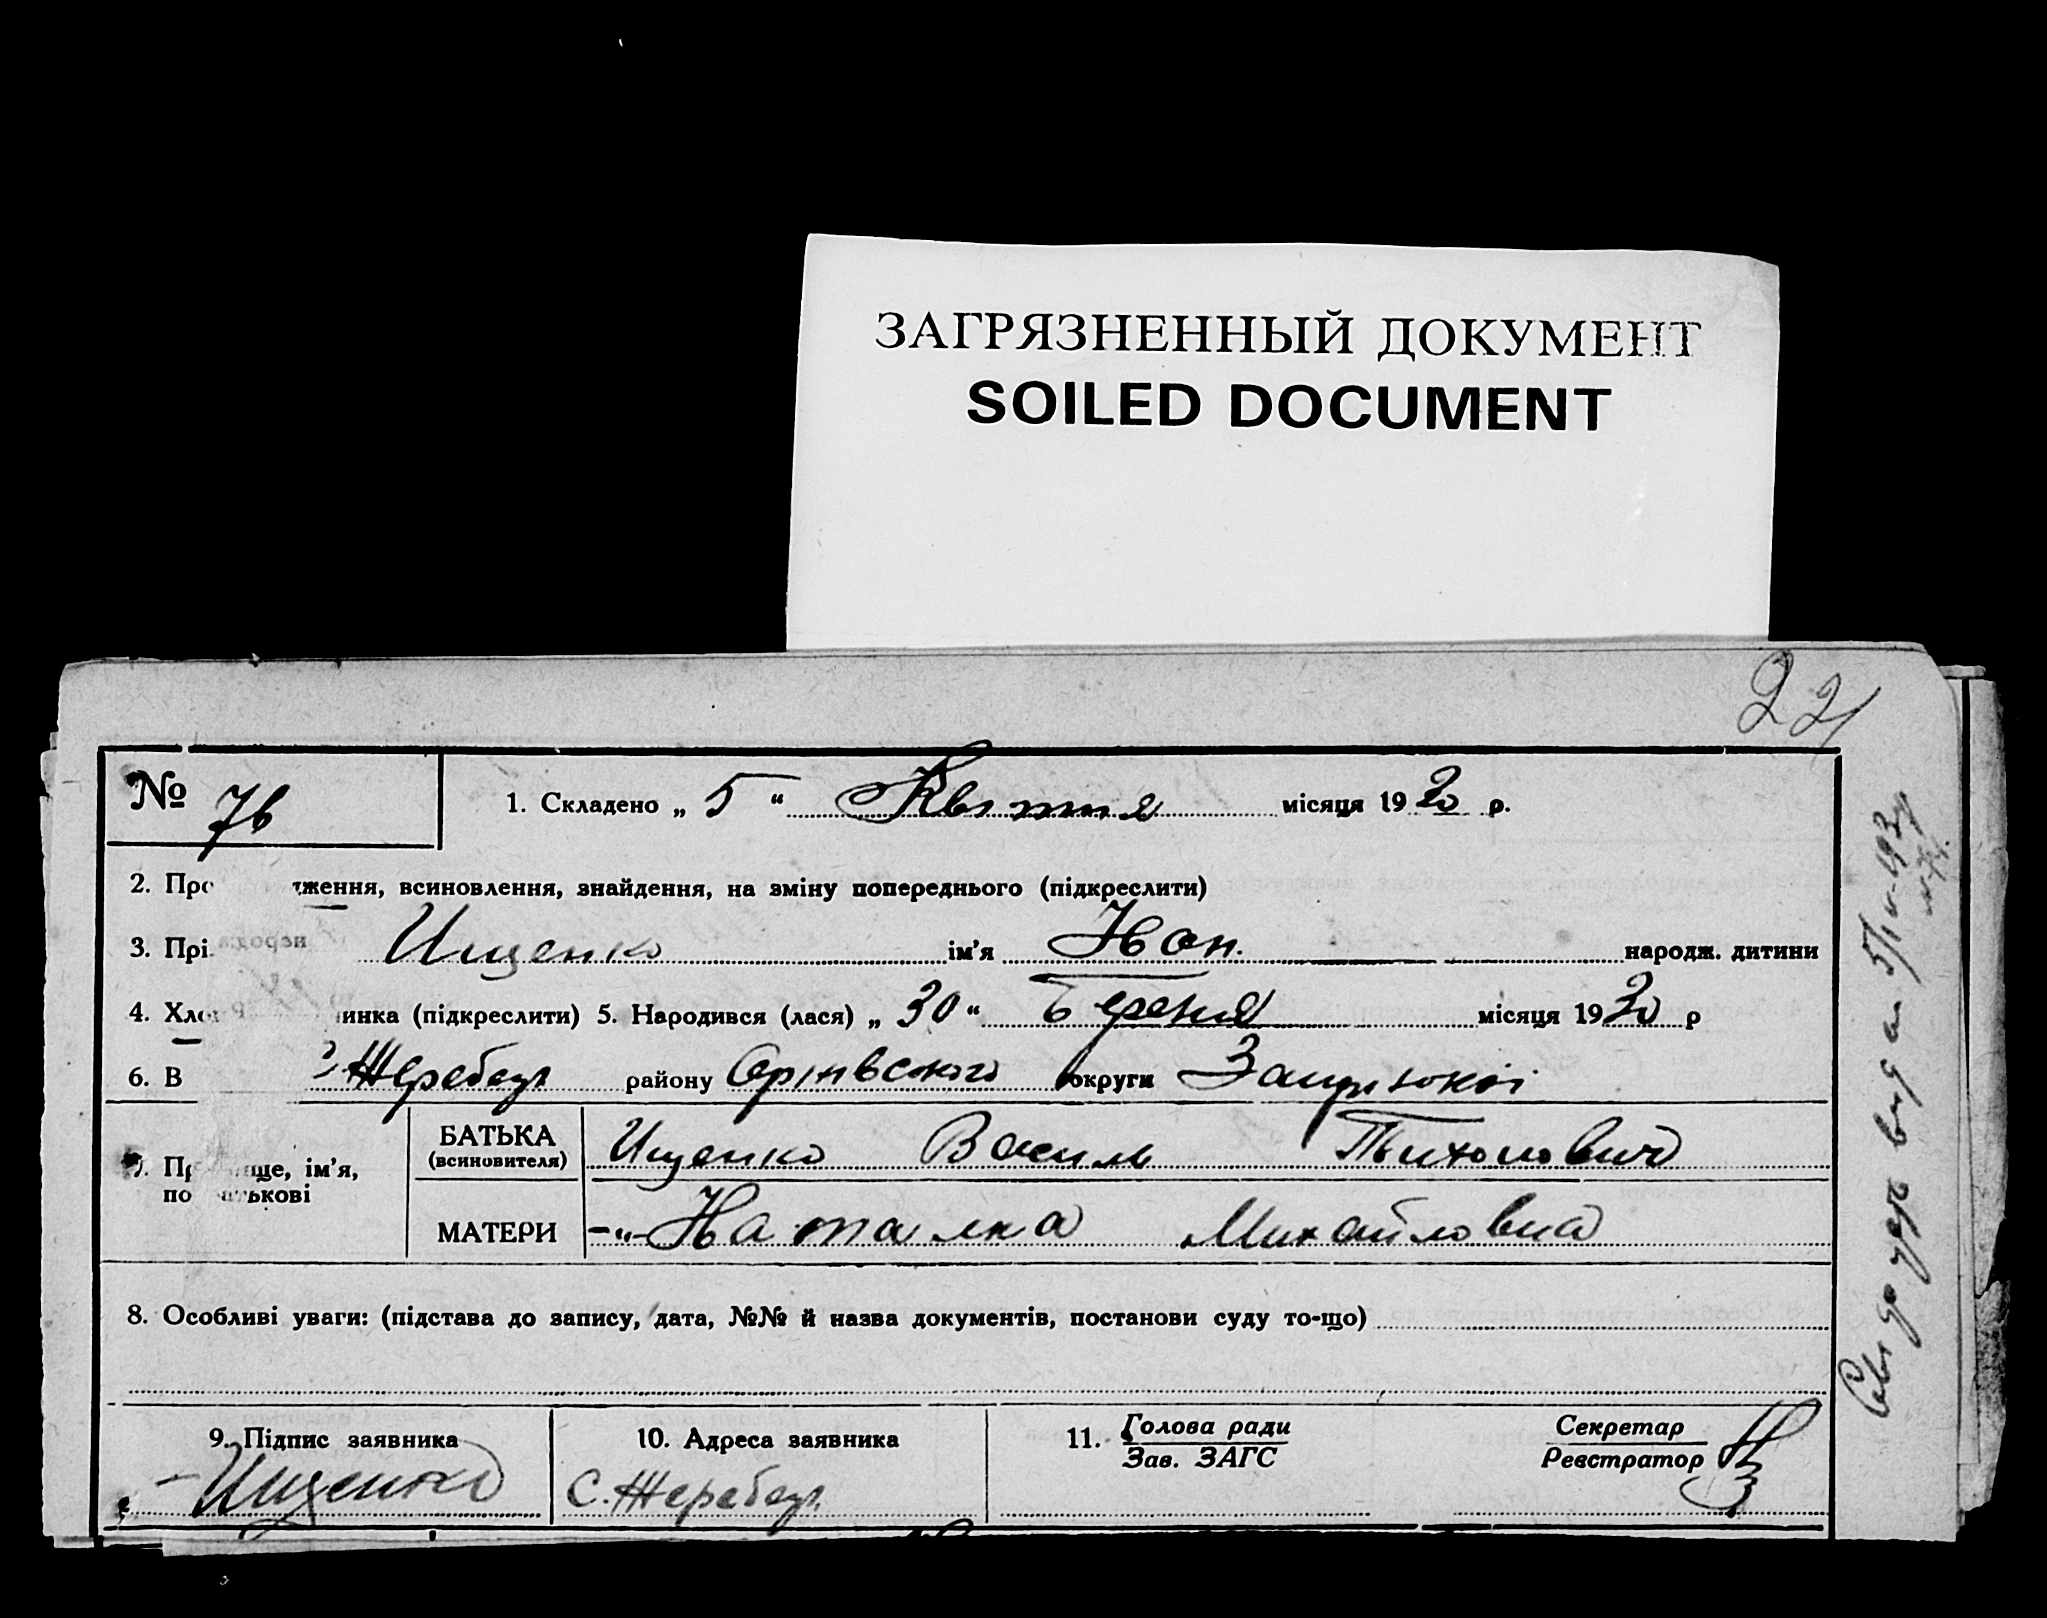 ЗАГРЯЗНЕННЫЙ ДОКУМЕНТ
SOILED DOCUMENT
22
№ 76
1. Складено „ 5 “ Квітня місяця 1930 р.
2. Про ження, всиновлення, знайдення, на зміну попереднього (підкреслити)
3. Прі Ищенко ім’я Іван. народж. дитини
4. Хло инка (підкреслити) 5. Народився (лася) „ 30 “ Березня місяця 1930 р
6. В Жеребець району Оріхівського округи Запорізької
7. Пр ище, ім’я, БАТЬКА Ищенко Василь Тихонович
по атькові (всиновителя)
МАТЕРИ -“- Наталка Михайловна
8. Особливі уваги: (підстава до запису, дата, №№ й назва документів, постанови суду то-що)
9. Підпис заявника 10. Адреса заявника 11. Голова ради Секретар
Зав. ЗАГС Реєстратор
Ищенко с. Жеребець